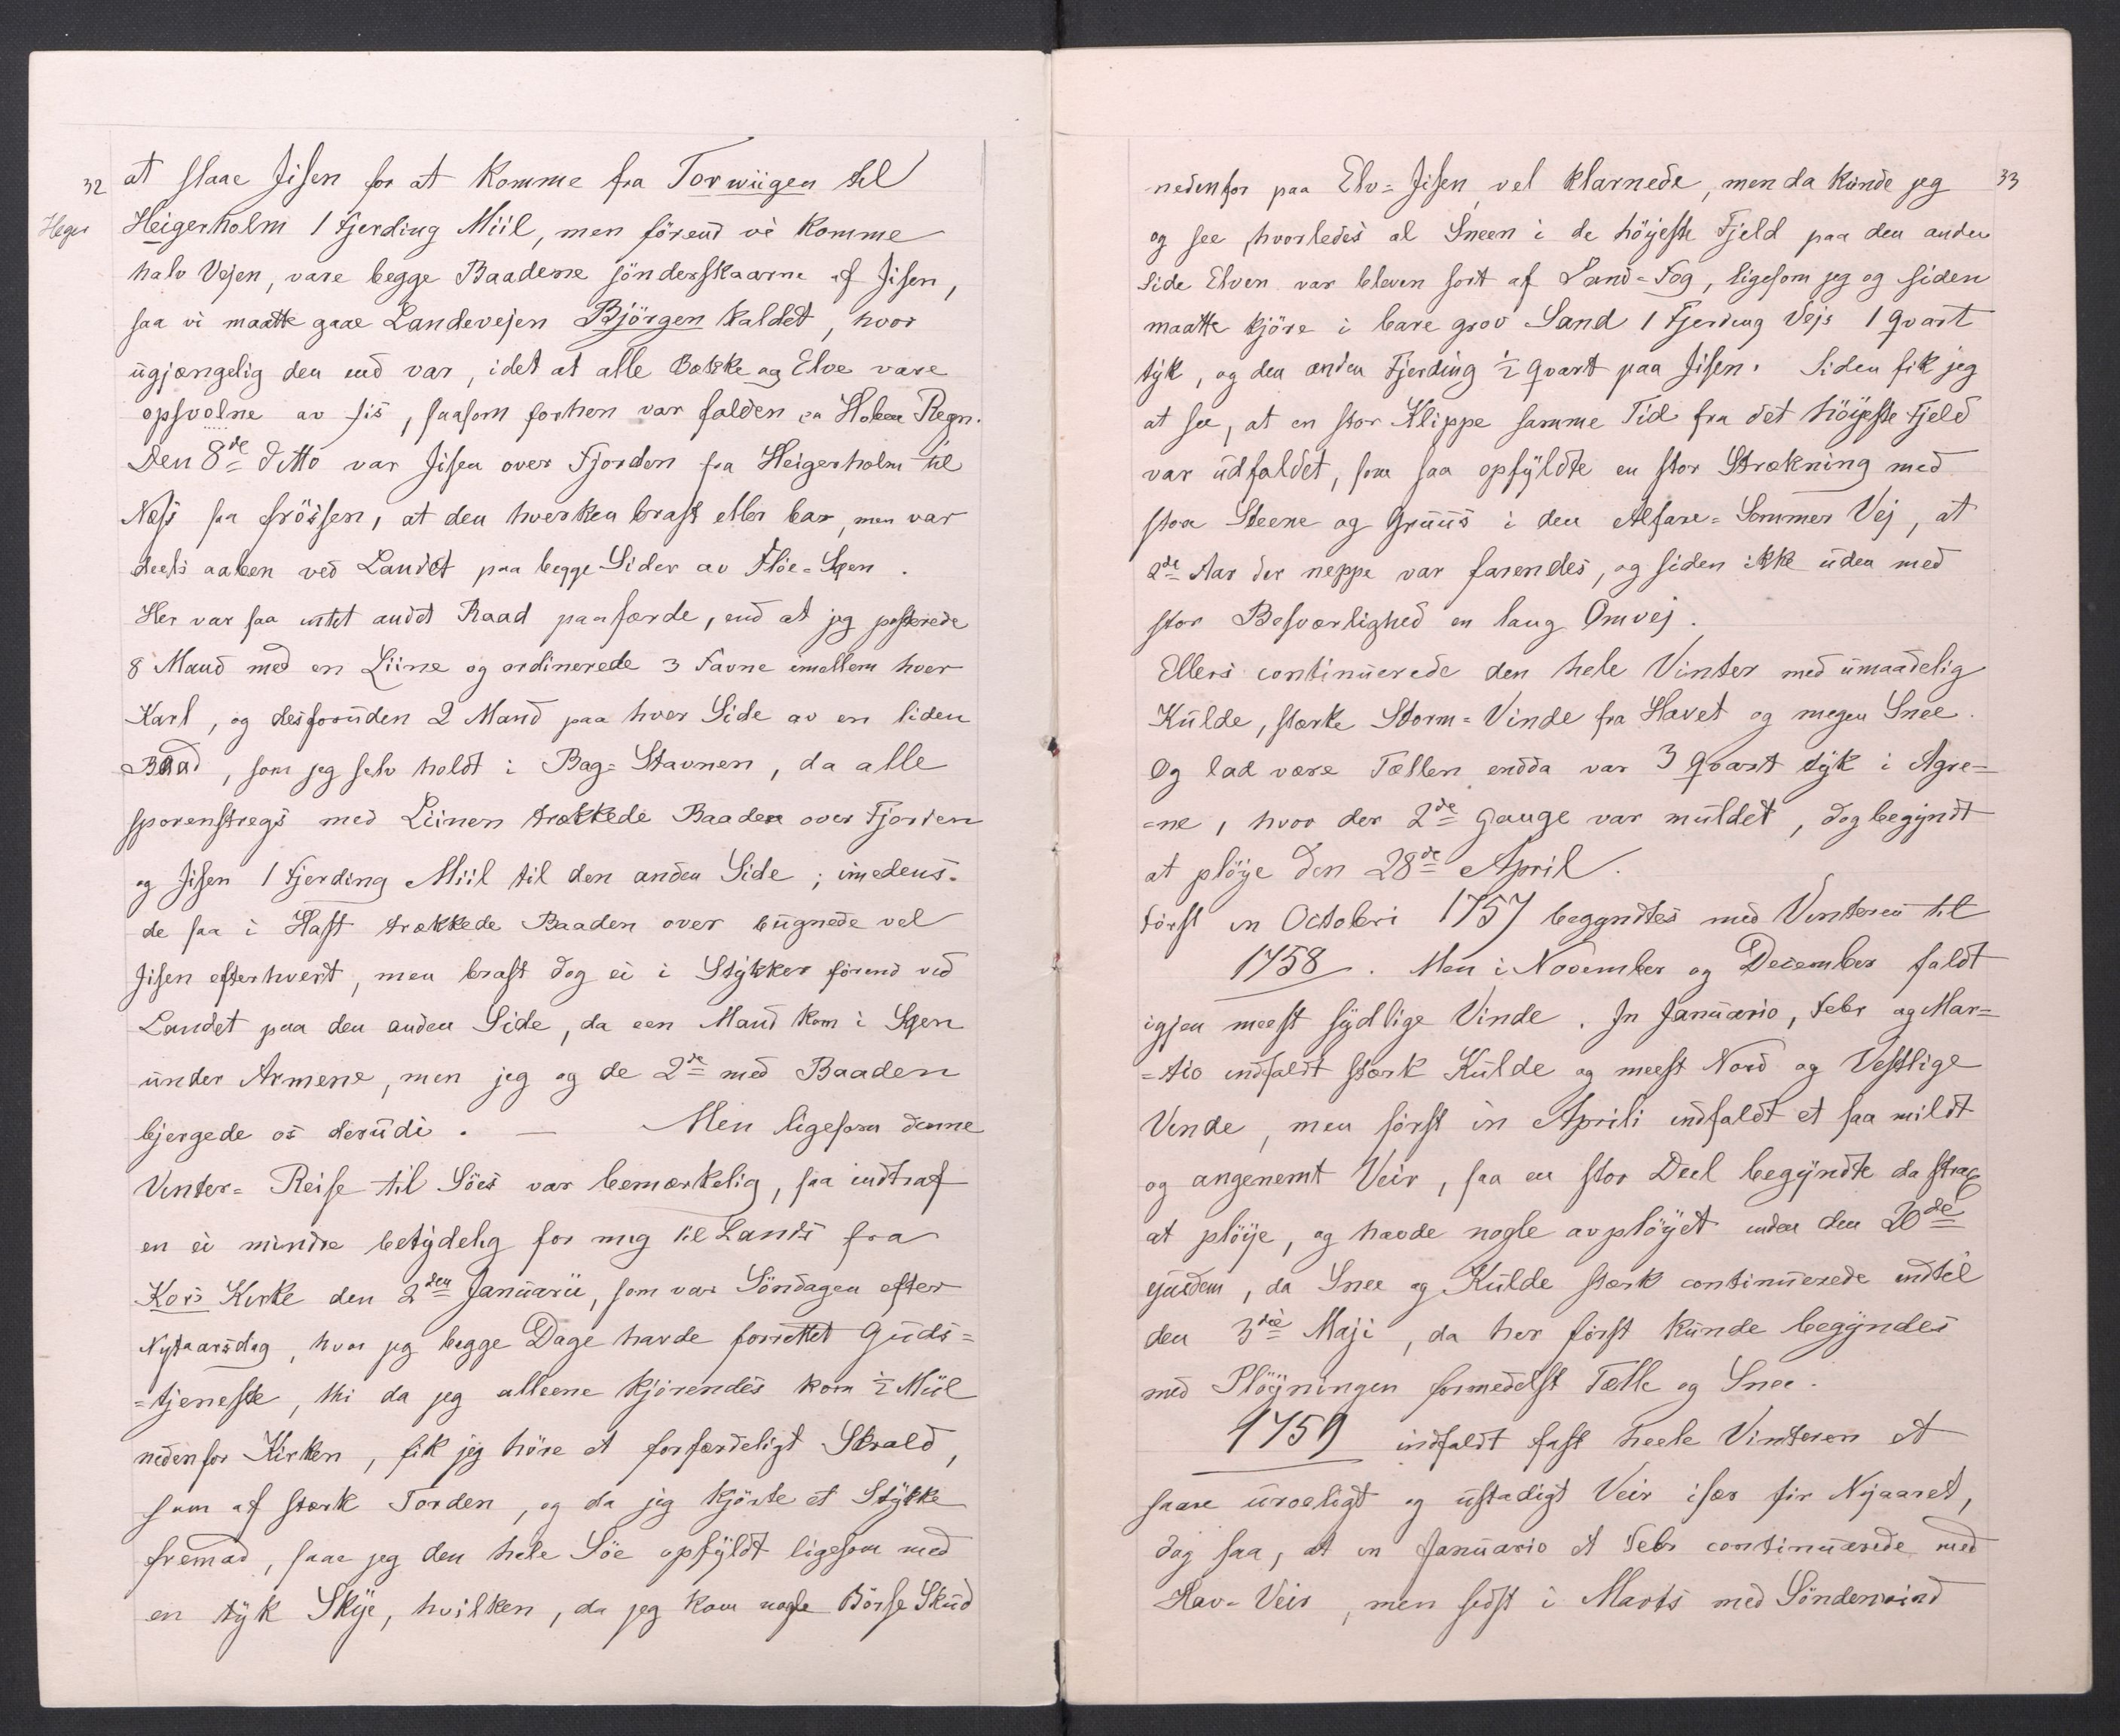 32
at slaae Jisen for at komme fra Torwiigen til
Heger
Heigerholm 1 Fjerding Miil, men förend vi komme
halv Vejen, vare begge Baadene sönderskaarne af Jisen,
saa vi maatte gaae Landevejen Björgen kaldet, hvor
ugjængelig den end var, idet at alle Bække og Elve vare
opsvolne av Jis, saasom forhen var falden en Regn.
Den 8de ditto var Jisen over Fjorden fra Heigerholm til
Næss saa frössen, at den hverken brast eller bar, men var
deels aaben ved Landet paa begge Sider av Flöe-Söen.
Her var saa intet andet Raad paafærde, end at jeg posterede
8 Mand med en Liine og ordinerede 3 Favne imellem hver
Karl, og desforuden 2 Mand paa hver Side av en liden
Baad, som jeg selv holdt i Bag=Stavnen, da alle
sporenstregs med Liinen trækkede Baaden over Fjorden
og Jisen 1 Fjerding Miil til den anden Side; imedens
de saa i Hast trækkede Baaden over bugnede vel
Jisen efterhvert, men brast dog ei i Stykker förend ved
Landet paa den anden Side, da een Mand kom i Söen
under Armene, men jeg og de 2de med Baaden
bjergede os derudi. — Men ligesom denne
Vinter=Reise til Söes var bemærkelig, saa indtraf
en ei mindre betydelig for mig til Lands fra
Kors Kirke den 2den Januarii, som var Söndagen efter
Nytaarsdag, hvor jeg begge Dage havde forrettet Guds=
=tjeneste, thi da jeg alleene kjörendes kom ½ Miil
nedenfor Kirken, fik jeg höre et forfærdeligt Skrald,
som af stærk Torden, og da jeg kjörte et Stykke
fremad, saae jeg den hele Söe opfyldt ligesom med
en tyk Skye, hvilken, da jeg kom nogle Börse Skud
33
nedenfor paa Elv=Jisen vel klarnede, men da kunde jeg
og see hvorledes al Sneen i de höjeste Fjeld paa den anden
Side Elven var bleven sort af Sand=Fog, ligesom jeg og siden
maatte kjöre i bare grov Sand 1 Fjerding Vejs 1 qvart
tyk, og den anden Fjerding ½ qvart paa Jisen. Siden fik jeg
at see, at en stor Klippe samme Tid fra det höyeste Fjeld
var udfaldet, som saa opfyldte en stor Strækning med
store Steene og Gruus i den Alfare=Sommer Vej, at
2de Aar der neppe var farendes, og siden ikke uden med
stor Besværlighed en lang Omvej.
Ellers continuerede den hele Vinter med umaadelig
Kulde, stærke Storm=Vinde fra Havet og megen Snee.
Og lad være Tællen endda var 3 qvart tyk i Agre=
=ne, hvor der 2de Gange var muldet, dog begyndt
at plöje den 28de April.
Först in Octobri 1757 begyndtes med Vinteren til
1758. Men i November og December faldt
igjen meest sydlige Vinde. In Januario, Febr og Mar=
=tio indfaldt stærk Kulde og meest Nord og Vestlige
Vinde, men först in Aprili indfaldt et saa mildt
og angenemt Veir, saa en stor Deel begyndte da strax
at plöije, og havde nogle avplöyet inden den 20de
ejusdem, da Snee og Kulde stærk continuerede indtil
den 3die Maji, da her först kunde begyndes
med Plöyningen formedelst Tælle og Snee.
1759 indfaldt fast heele Vinteren et
saare uroeligt og ustadigt Veir især för Nyaaret,
dog saa, at in Januario et Febr continuerede med
Hav=Veir, men sidst i Marts med Söndenvind